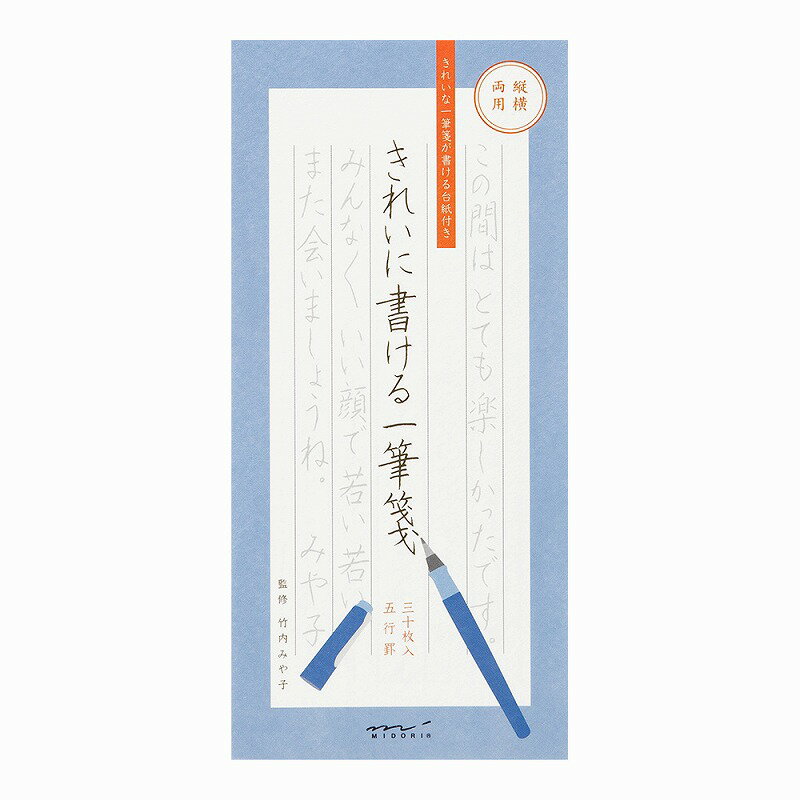 縦横
両用
きれいな一筆箋が書ける台紙付き
この間はとても楽しかったです。
きれいに書ける一筆箋
みんなよくいい顔で若い若い
また会いましょうね。 みや子
三十枚入
五行罫
監修 竹内みや子
MIDORI®